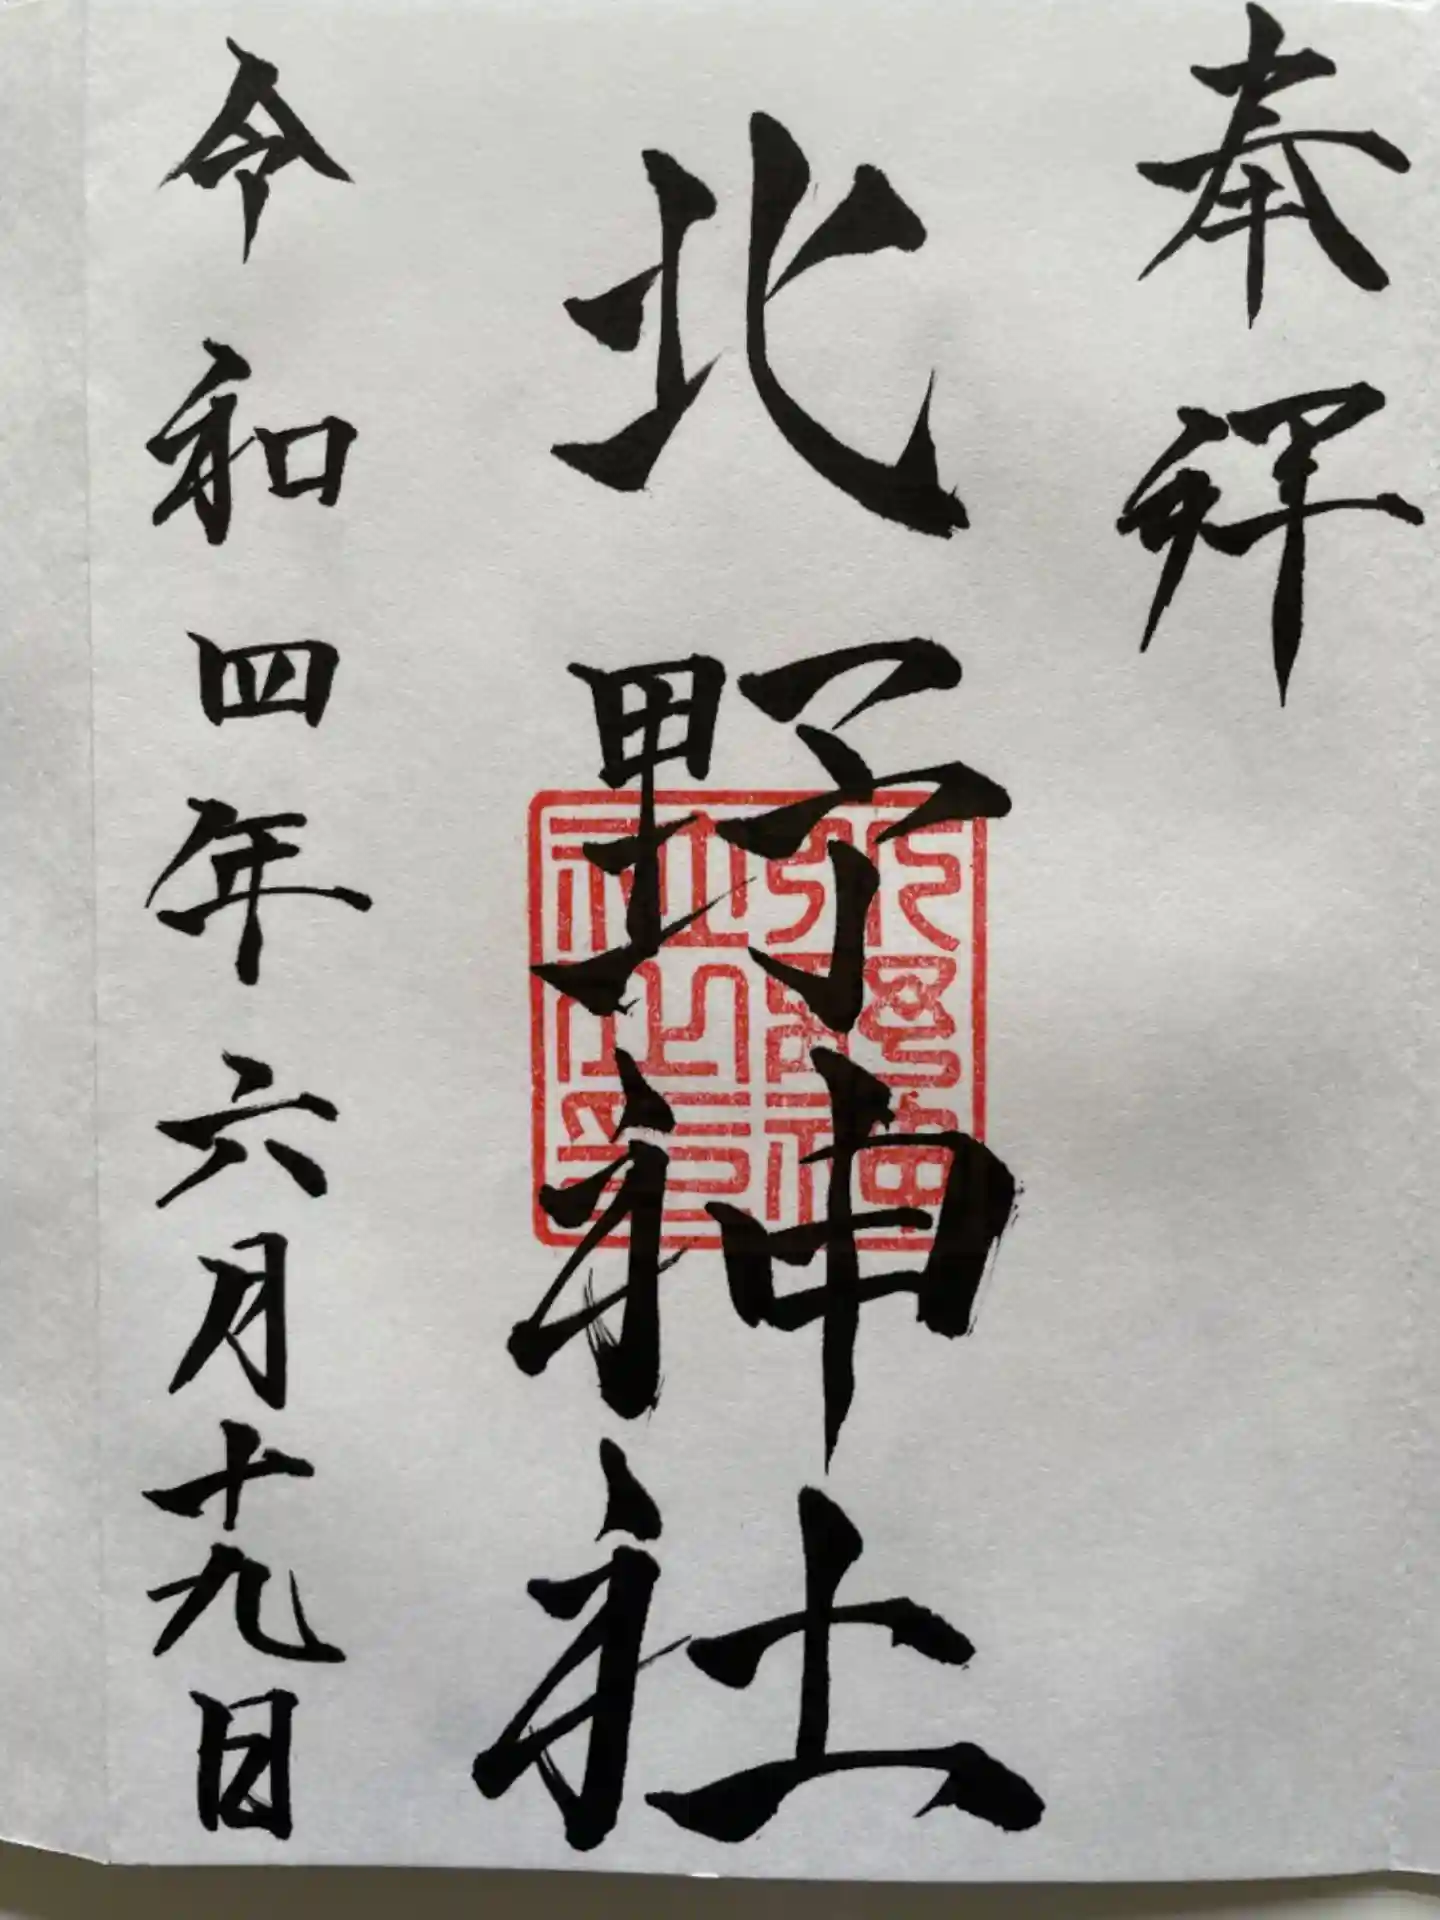 奉拝
北野神社
北野神社之印
令和四年六月十九日